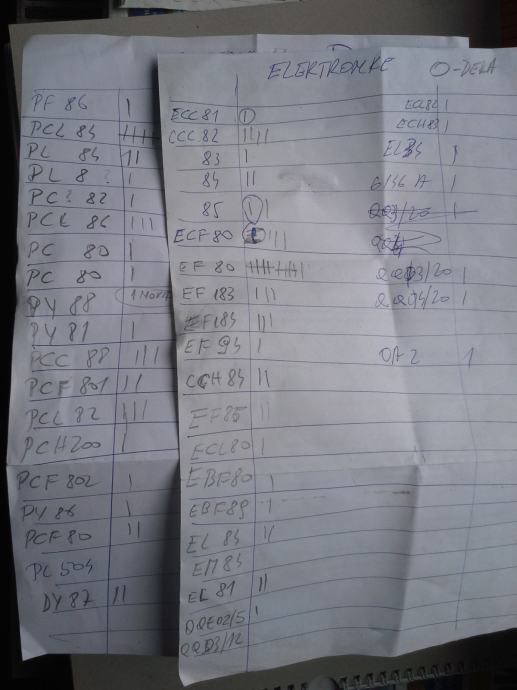 PF 86 |
PCL 84
PL 84 ||
PL 8 ? |
PC ? 82 |
PCL 86 |||
PC 80 |
PC 80 |
PY 88 1
PY 81 |
PCC 88 |||
PCF 801 ||
PCL 82 |||
PCH 200 |
PCF 802 |
PY 88 |
PCF 80 ||
PL 504
DY 87 ||
ELEKTRONKE
ECC 81 1
CCC 82 ||||
83 |
84 ||
85 ||
ECF 80 |||
EF 80
EF 183 |||
EF 184 |||
EF 94 |
CCH 84 ||
EF 85 ||
ECL 80 |
EBF 80 |
EBF 89 |
EL 84 ||
EM 84
EL 81 ||
QQE 02/5 |
QQ03/12
O-DELA
ECL 82 |
ECH 83 |
EL 34 |
6146 A |
QQ03/20 |
QQ04/20 |
OA 2 1